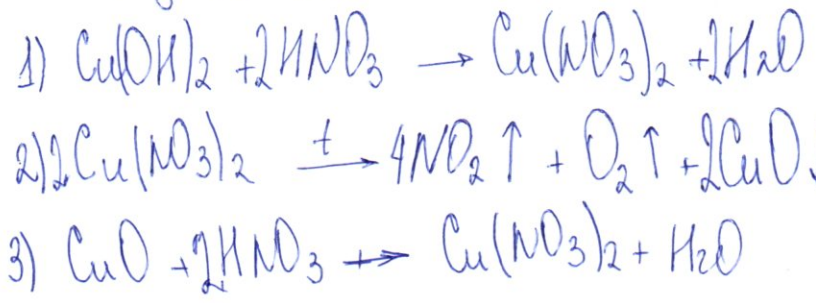 1) Cu(OH)2 + 2HNO3 → Cu(NO3)2 + 2H2O
2) 2Cu(NO3)2 t→ 4NO2↑ + O2↑ + 2CuO.
3) CuO + 2HNO3 → Cu(NO3)2 + H2O